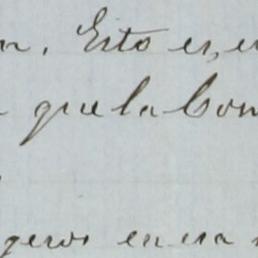 n. Esto es, e
que la Com
geros en esa